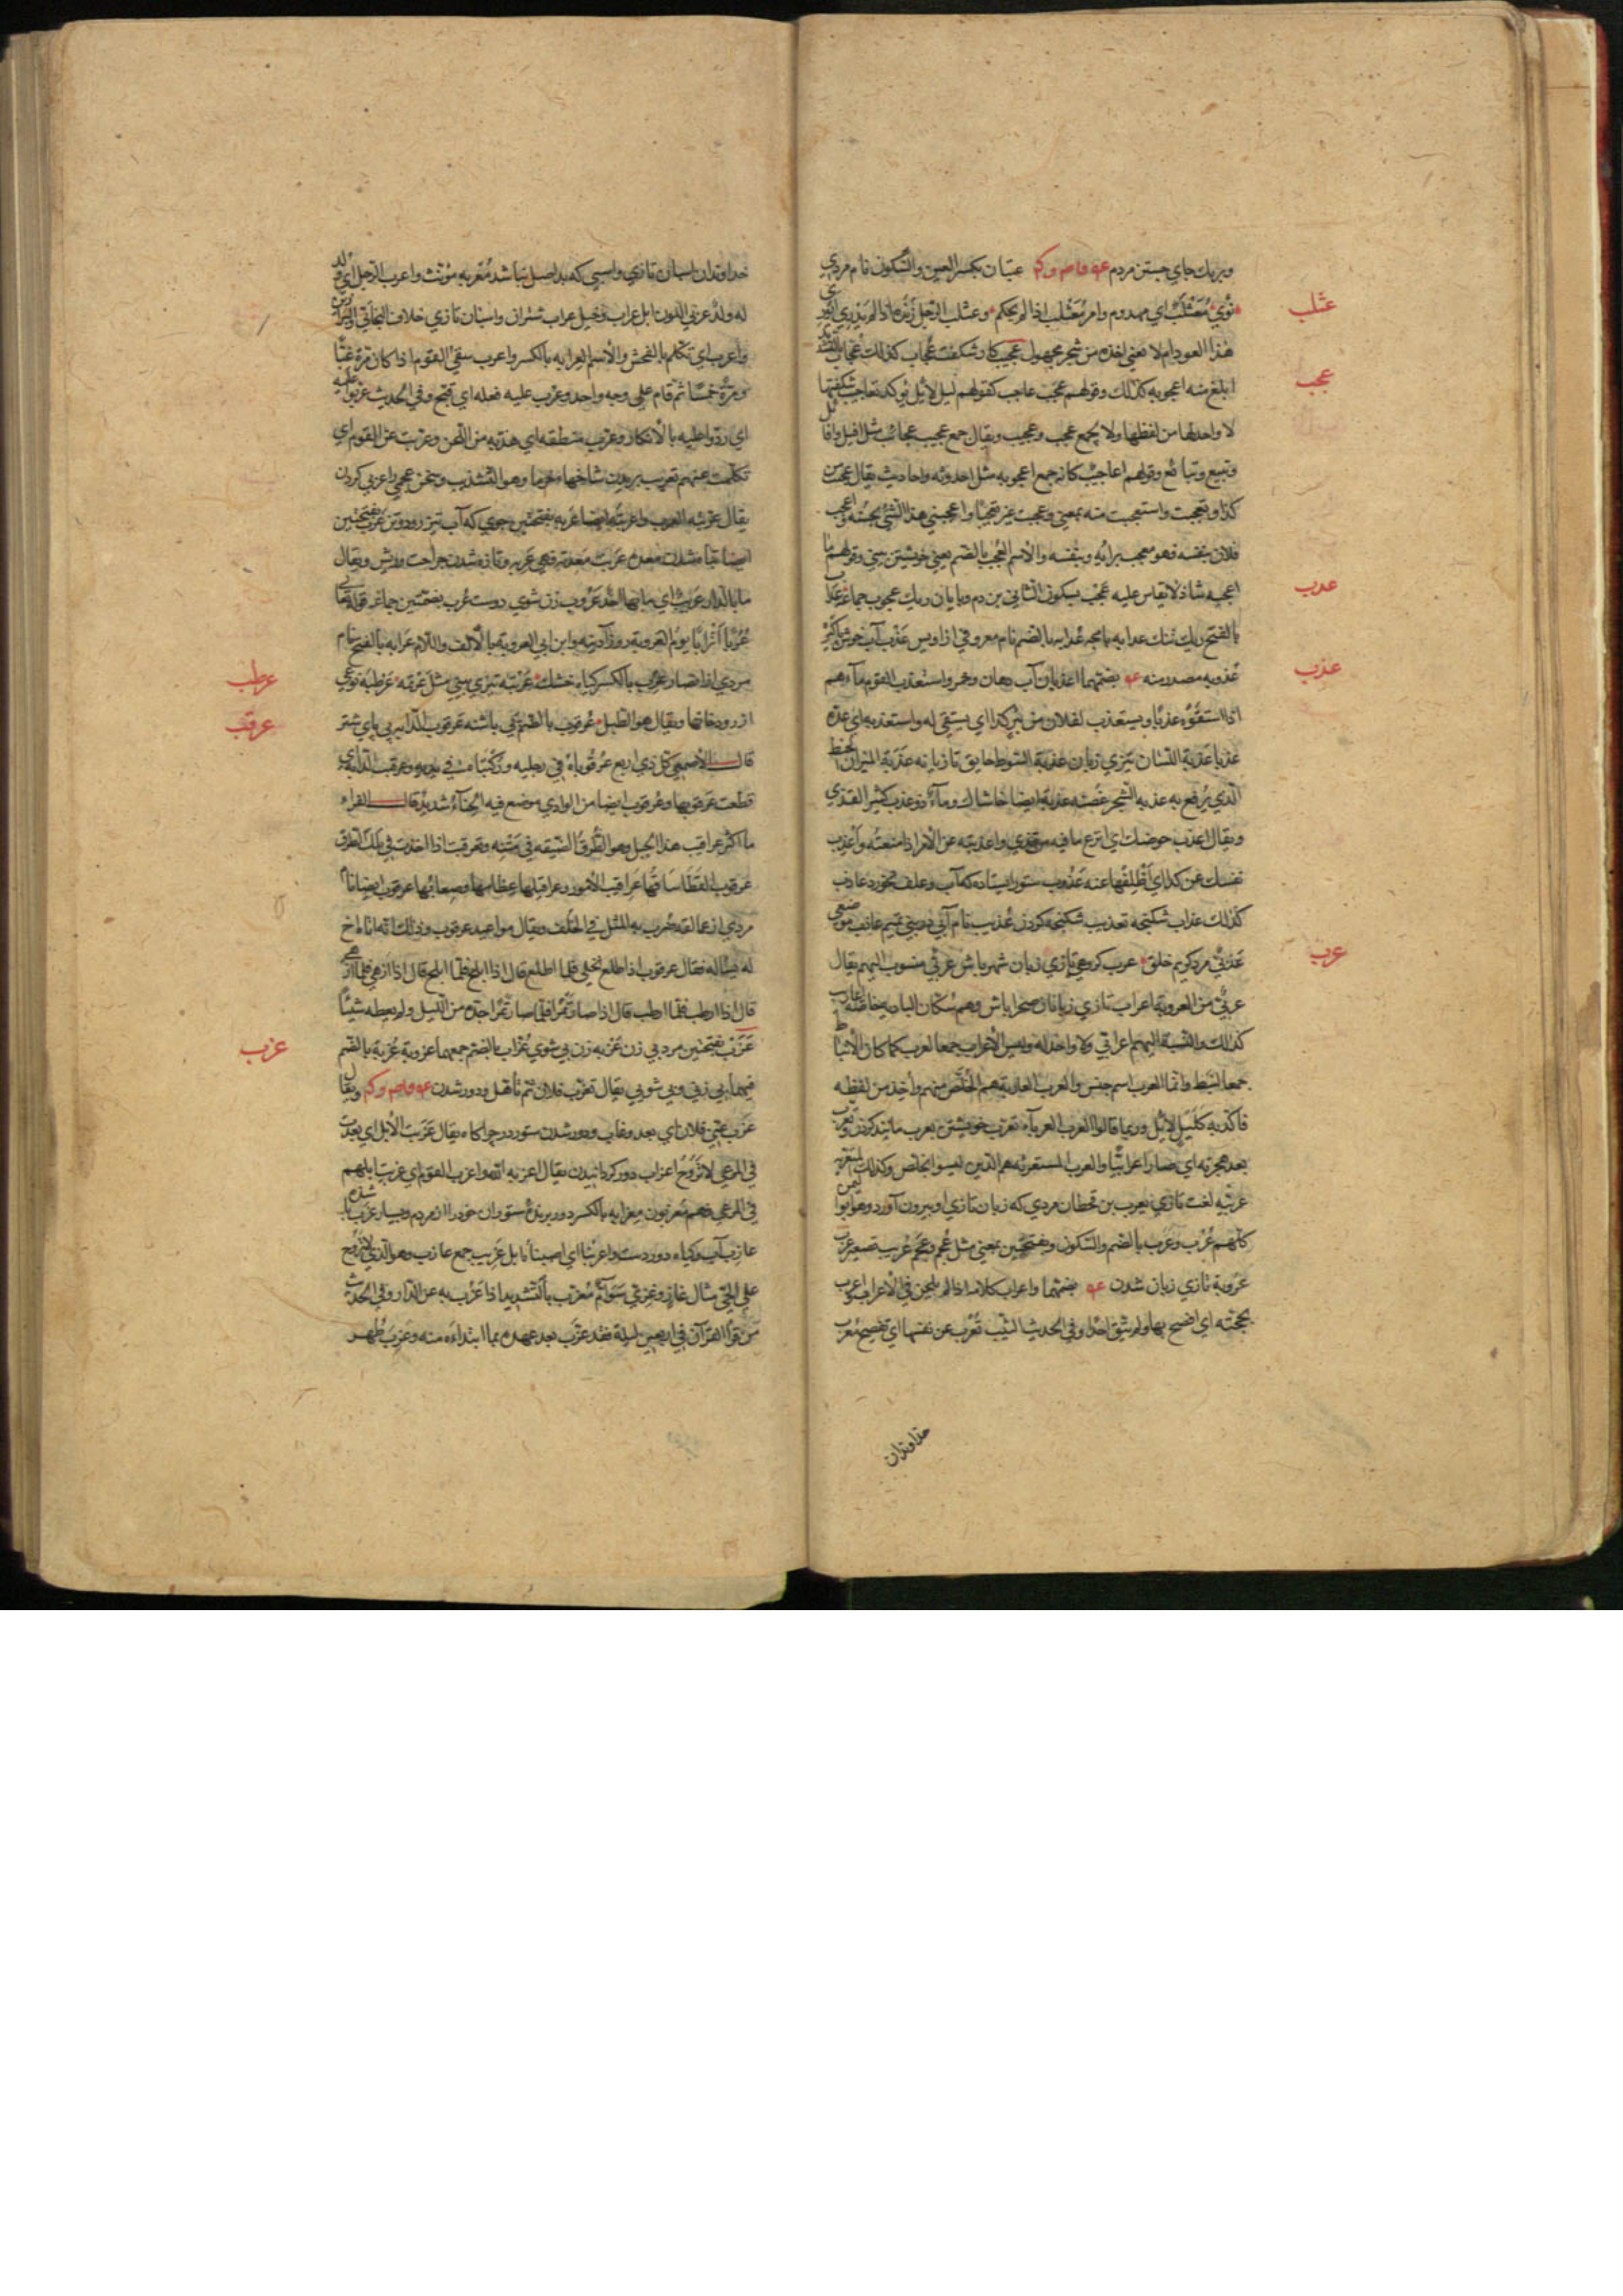 وبريك جاي جستن مردم عتبان بكسر العين والسكون نام مردي
عثلب
نؤي معثلب اي مهدوم وامر معثلب اذا لم يحكم وعثلب الرجل زنده اذا لم يدر ايوري
هذا العود ام لا يعني اخذه من شجر مجهول عجيب كار شكفت عجاب كذلك عجاب بالتشديد
عجب
ابلغ منه اعجوبه كذلك وقولهم عجب عاجب كقولهم ليل لائل يؤكد تعاجيب شكفتيها
لا واحد لها من لفظها ولا يجمع عجب وعجيب ويقال جمع عجيب عجائب مثل افيل وافائل
وتبيع وتبائع وقولهم اعاجيب كانه جمع اعجوبه مثل احدوثه واحاديث يقال عجبت من
كذا وتعجبت واستعجبت منه بمعني وعجبت غيري تعجيبا واعجبني هذا الشئ لحسنه واعجب
فلان بنفسه فهو معجب برايه وبنفسه والاسم العجب بالضم يعني خويشتن بيني وقولهم ما
اعجبه شاذ لا يقاس عليه عجب بسكون الثاني بن دم وپايان ريك عجوب جماعة عداب
عدب
بالفتح ريك تنك عذاب خوش پاكيزه
عذوبه مصدر منه بضمهما اعذبان آب دهان وخمر واستعذب القوم ماءهم
عذب
اذا استقوه عذبا ويستعذب لفلان من بئر كذا اي يستقي له واستعذبه اي عده
عذبا عذبة اللسان تيزي زبان عذبة السوط تازيانه عذبة الميزان الخيط
الذي يرفع به عذبه الشجر غصنه عذبة ايضا خاشاك وماء ذو عذب كثير القذي
ويقال اعذب حوضك اي انزع ما فيه من قذي واعذبته عن الامر اذا منعته واعذب
نفسك عن كذا اي اظلفها عنه عذوب ستور ايستاده كه آب وعلف نخورد عاذب
كذلك عذاب شكنجه تعذيب شكنجه كردن عذيب نام آبي مر بني تميم عاذب موضعي
عذبي مرد كريم خلق عرب كروهي تازي زبان شهر باش عربي منسوب اليهم يقال
عرب
عربي من العروبة اعراب تازي زبانان صحرا باش وهم سكان الباديه خاصه اعاريب
كذلك والنسبة اليهم اعرابي ولا واحد له وليس الاعراب جمعا لعرب كما كان الانباط
جمعا لنبط وانما العرب اسم جنس والعرب العاربة هم الخلص منهم واخذ من لفظه
فاكد به كليل لائل وربما قالوا العرب العرباء تعرب خويشتن بعرب مانند كردن وتعرب
بعد هجرته اي صار اعرابيا والعرب المستعربه هم الذين ليسوا بخلص وكذلك المتعربه
عربيه لغت تازي يعرب بن قحطان مردي كه زبان تازي او بيرون آورد وهو ابو اليمن
كلهم عرب وعرب بالضم والسكون وبفتحتين بمعني مثل عجم وعجم عريب تصغير عرب
عروبة تازي زبان شدن بضمهما واعرب كلامه اذا لم يلحن في الاعراب واعرب
بحجته اي افصح بها ولم يتق احدا وفي الحديث الثيب تعرب عن نفسها اي تفصح معرب
خداوندان
خداوندان اسپان تازي واسپي كه بد اصل نباشد معربه مؤنث واعرب الرجل اي ولد
له ولد عربي اللون ابل عراب وخيل عراب شتران واسپان تازي خلاف البخاتي والبراذين
واعرب اي تكلم بالفحش والاسم العرابه بالكسر واعرب سقي القوم اذا كان مرة غبا
ومرة خمسا ثم قام علي وجه واحد وعرب عليه فعله اي قبح وفي الحديث عربوا عليه
اي ردوا عليه بالانكار وعرب منطقه اي هذبه من اللحن وعربت عن القوم اي
تكلمت عنهم تعريب بريدن شاخهاء خرما وهو التشذيب وسخن عجمي را عربي كردن
يقال عربته العرب واعربته ايضا عربه بفتحتين جوي كه آب تيز رود عرب بفتحتين
ايضا تباه شدن معده عربت معدته فهي عربه وتازه شدن جراحت وريش ويقال
ما بالدار عريب اي ما بها احد عروب زن شوي دوست عرب بضمتين جماعه قوله تعالي
عربا اترابا يوم العروبة روز آدينه وابن ابي العروبة بالالف واللام عرابه بالفتح نام
مردي از انصار عرب بالكسر كياه خشك عرتبه تيزي بيني مثل عرتمه عرطبه نوعي
عرطب
از رودخانها ويقال هو الطبل عرقوب بالضم پي پاشنه عرقوب الدابه پي پاي ستور
عرقب
قال الاصمعي كل ذي اربع عرقوباه في رجليه وركبتاه في يديه وعرقبت الدابه اي
قطعت عرقوبها وعرقوب ايضا من الوادي موضع فيه انحناء شديد قال الفراء
ما اكثر عراقيب هذا الجبل وهو الطرق الضيقه في متنه وتعرقبت اذا اخذت في تلك الطرق
عرقوب القطا ساقها عراقيب الامور وعراقيلها عظامها وصعابها عرقوب ايضا نام
مردي از عمالقه ضرب به المثل في الخلف ويقال مواعيد عرقوب وذلك انه اتاه اخ
له يساله فقال عرقوب اذا طلع نخلي فلما اطلع قال اذا ابلح فلما ابلح قال اذا ازهي فلما ازهي
قال اذا ارطب فلما ارطب قال اذا صار تمرا فلما صار تمرا اجده من الليل ولم يعطه شيئا
عزب بفتحتين مرد بي زن عزبه زن بي شوي عزاب بالضم جمعهما عزوبة عزبة بالضم
عزب
فيهما بي زني وبي شويي يقال تعزب فلان ثم تأهل ودور شدن ويقال
عزب عني فلان اي بعد وغاب ودور شدن ستور در چراكاه يقال عزبت الابل اي بعدت
في المرعي لا تروح اعزاب دور كردانيدن يقال اعزبه الله واعزب القوم اي عزبت ابلهم
في المرعي فهم معزبون معزابه بالكسر دور برنده ستوران خود را از مردم وبسيار عزب شده
عازب آب وكياه دور دست واعزبنا اي اصبنا عازبا ابل عزيب جمع عازب وهو الذي لا تروح
علي الحي مثال غاز وغزي سوام معزب بالتشديد اذا عزب به عن الدار وفي الحديث
من قرا القرآن في اربعين ليلة فقد عزب بعد عهده بما ابتداءه منه وعزب طهر